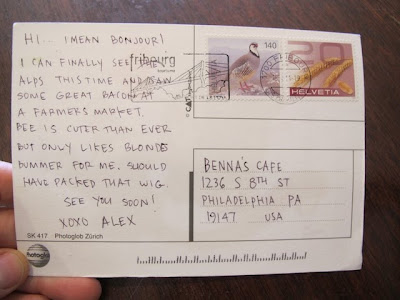 HI... I MEAN BONJOUR!
I CAN FINALLY SEE THE
ALPS THIS TIME AND SAW
SOME GREAT BACON AT
A FARMERS MARKET.
BEE IS CUTER THAN EVER
BUT ONLY LIKES BLONDES
BUMMER FOR ME. SHOULD
HAVE PACKED THAT WIG.
SEE YOU SOON!
XOXO ALEX
SK 417 Photoglob Zürich
photoglob
fribourg
140
20
HELVETIA
BENNA'S CAFE
1236 S 8TH ST
PHILADELPHIA PA
19147 USA